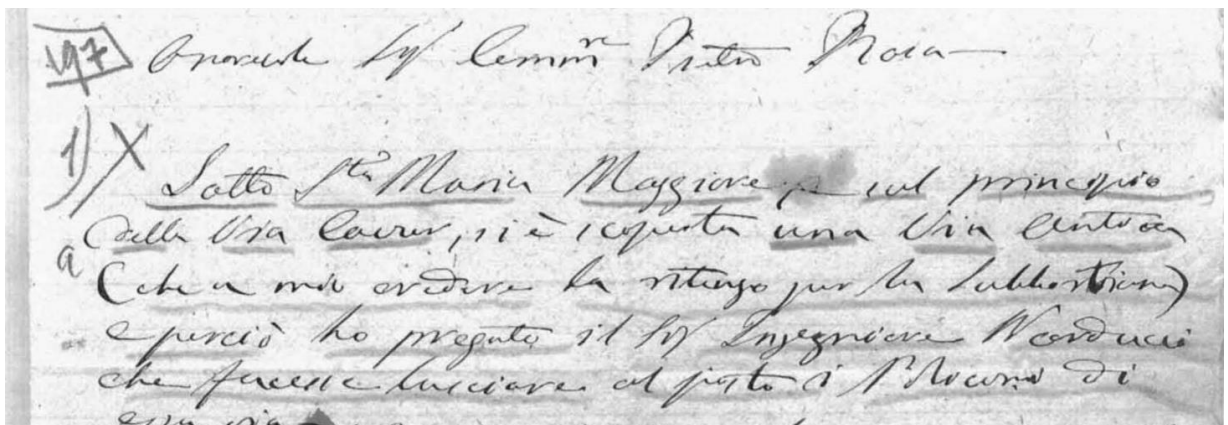 197 Onorevole Sig Comm.re Pietro Rosa
1) X Sotto S.ta Maria Maggiore sul principio
della Via Cavour, si è scoperta una Via Antica
a (che a mio credere la ritengo per la Subburana)
e perciò ho pregato il Sig Ingegniere Narducci
che facesse lasciare al posto i Poligoni di
essa via